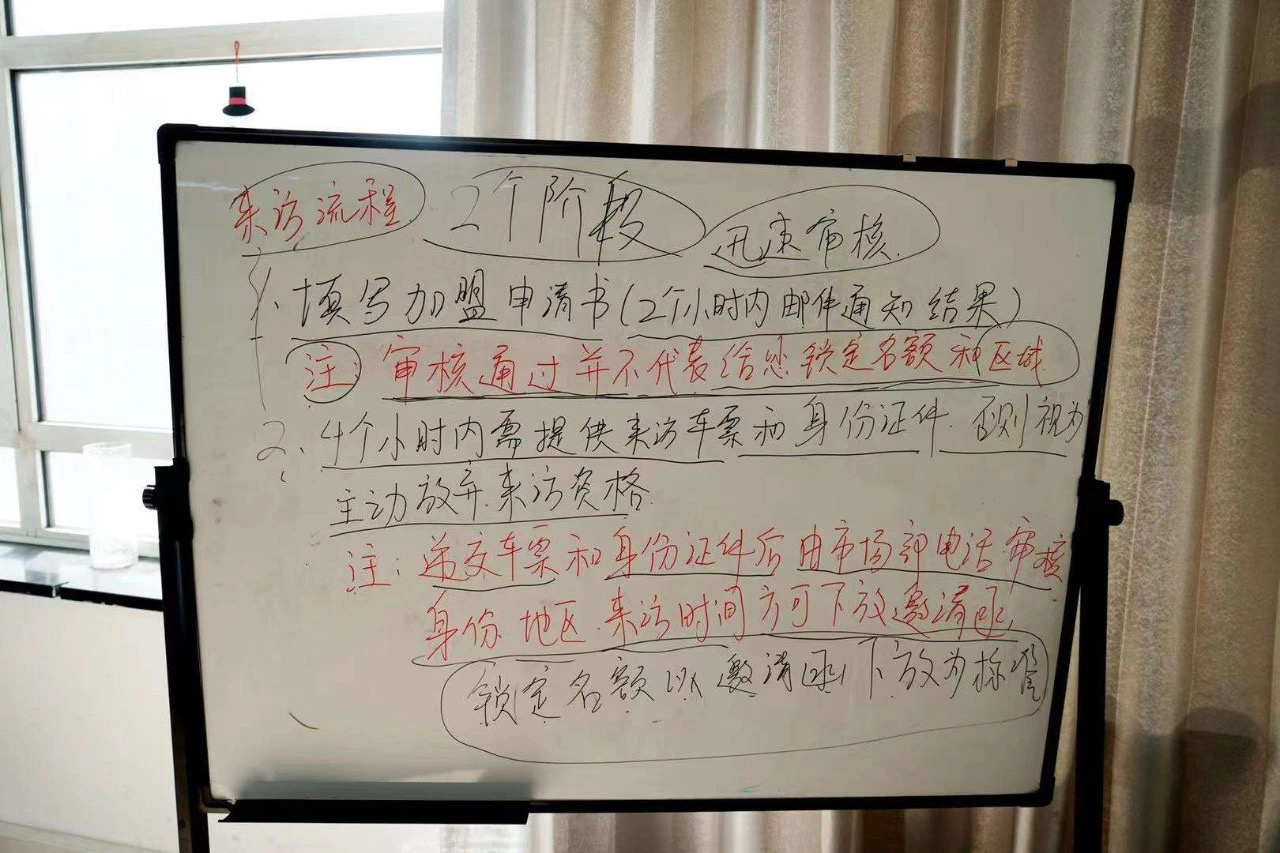 来访流程 2个阶段 迅速审核.
1. 填写加盟申请书(2个小时内邮件通知结果)
注: 审核通过并不代表给您锁定名额和区域
2、4个小时内需提供来访车票和身份证件.否则视为
主动放弃来访资格.
注:递交车票和身份证件后由市场部电话审核
身份.地区.来访时间方可下放邀请函,
锁定名额以邀请函下放为标准